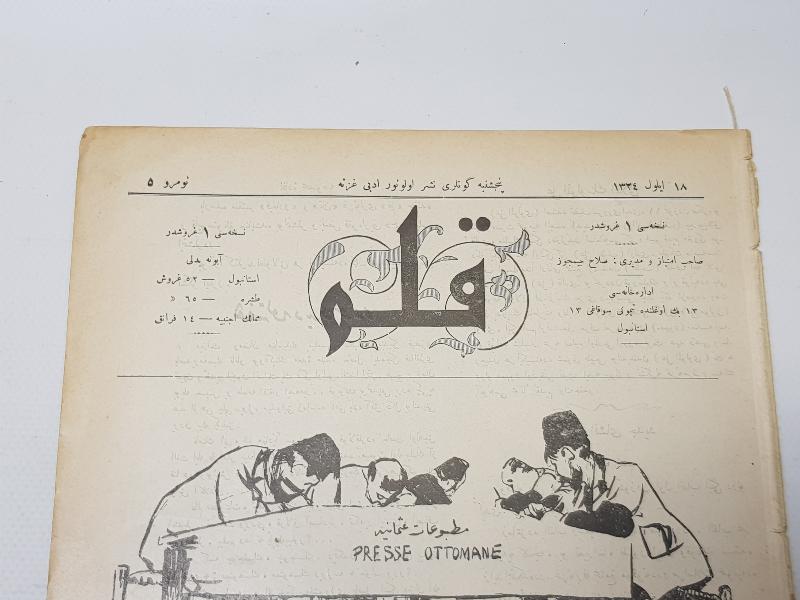 ١٨ ايلول ١٣٢٤
پنجشنبه كونلرى نشر اولونور ادبى غزته
نومرو ٥
نسخه‌سى ١ غروشدر
صاحب امتياز و مديرى : صلاح جيمجوز
اداره‌خانه‌سى
استانبول
قلم
نسخه‌سى ١ غروشدر
آبونه بدلى
استانبول — ٥٢ غروش
طشره — ٦٥ »
ممالك اجنبيه — ١٤ فرانق
مطبوعات عثمانيه
PRESSE OTTOMANE